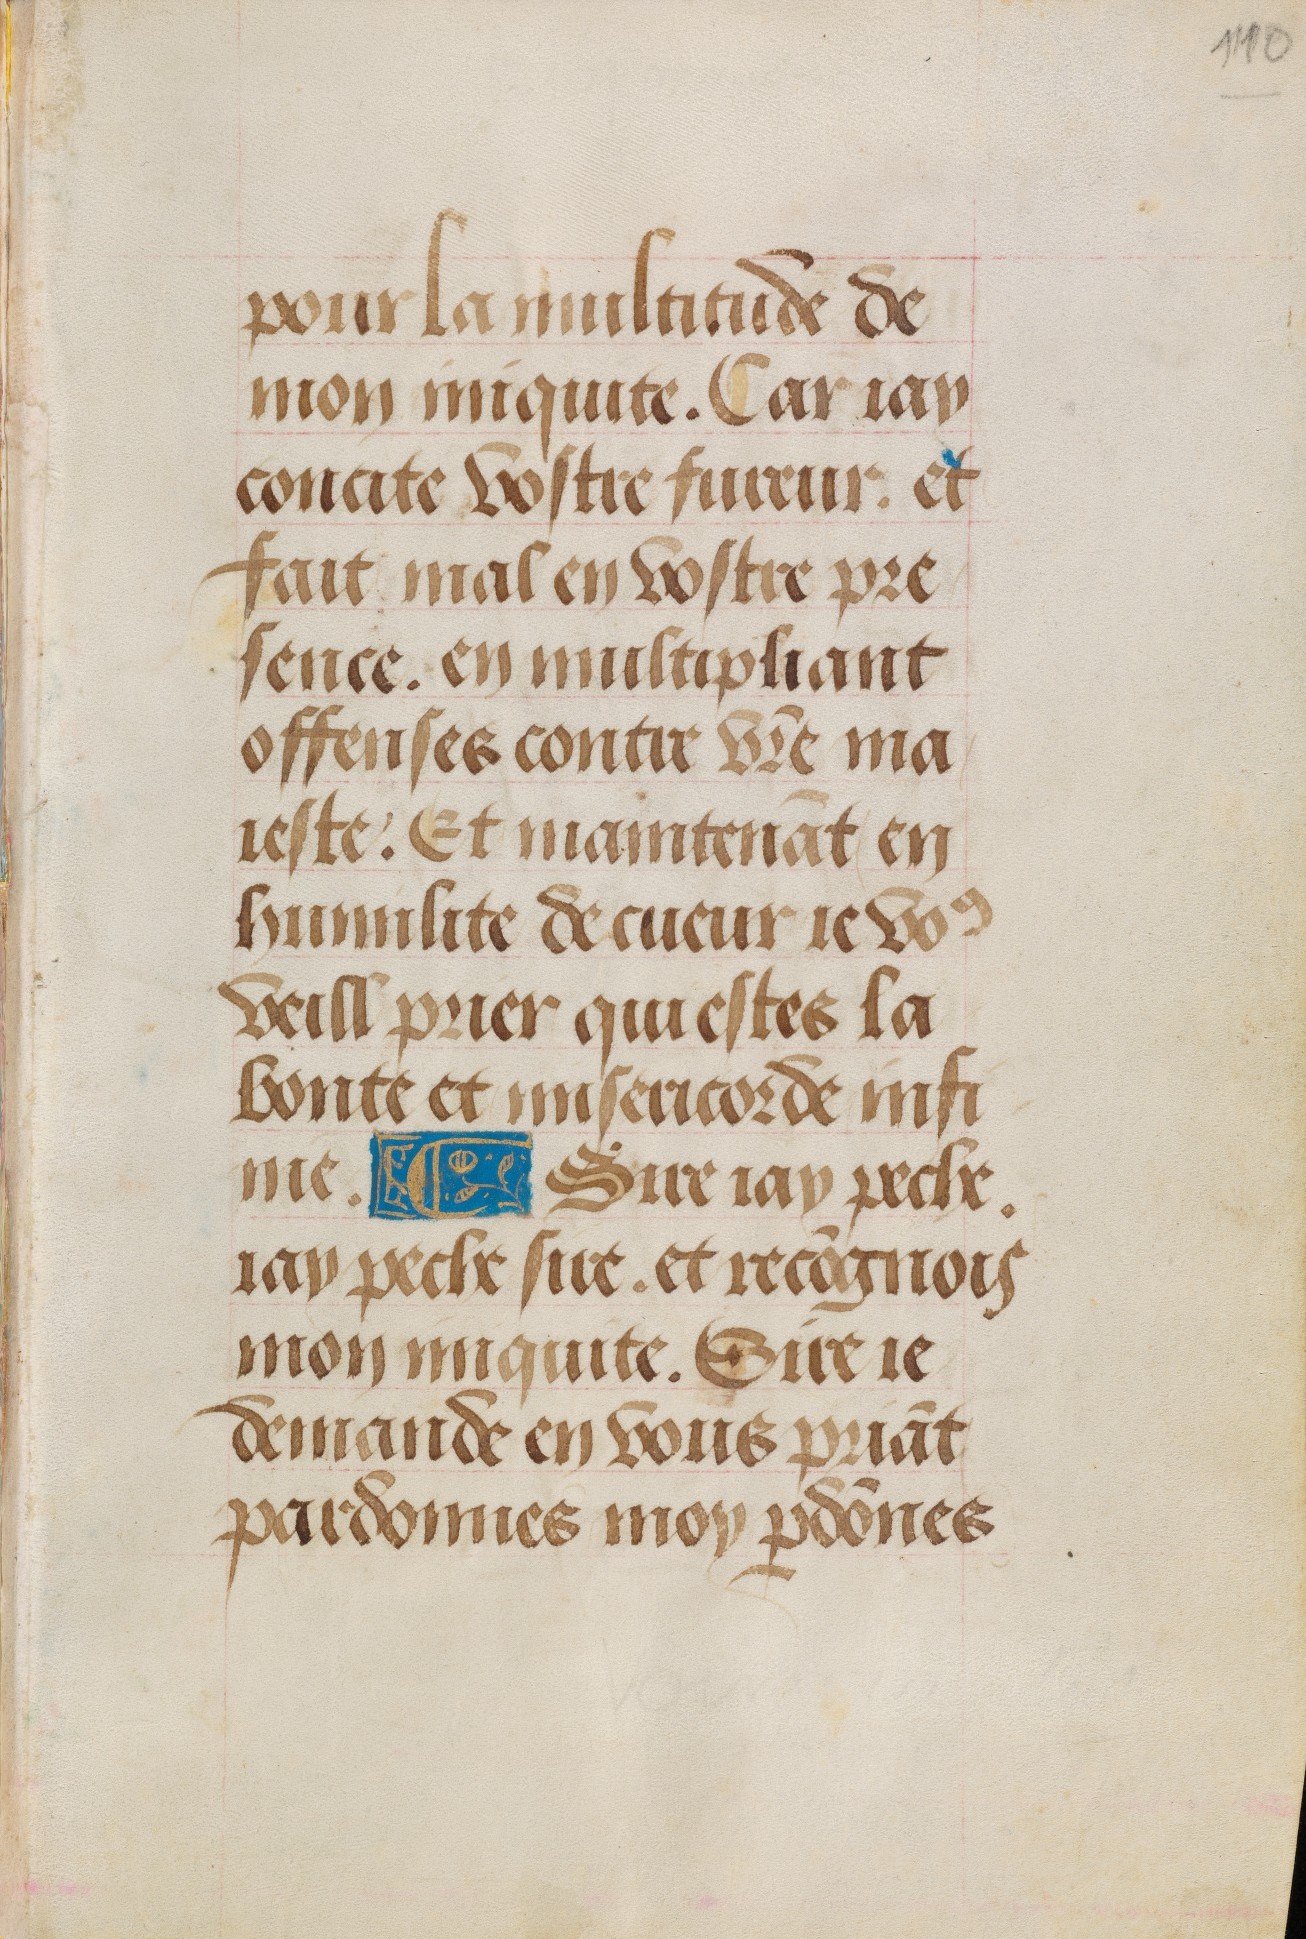 110
pour la multitude de
mon iniquite. Car iay
concite vostre fureur. et
fait mal en vostre pre
sence. en multipliant
offenses contre vr̄e ma
ieste. Et maintenāt en
humilite de cueur ie voꝰ
veill prier qui estes la
bonte et misericorde infi
nie. Sire iay peche.
iay peche sire. et recōgnois
mon iniquite. Sire ie
demande en vous priāt
pardonnes moy ꝑdōnes